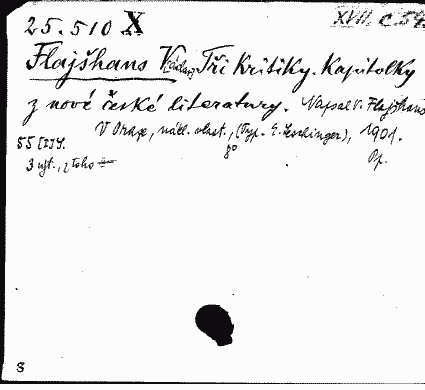 25.510 X
XVII. C. 54
Flajšhans V(áclav). Tři kritiky. Kapitolky
z nové české literatury. Napsal V. Flajšhans
V Praze, nákl. vlast., (Typ. E. Leschinger), 1901.
8°
Pp.
55
3 , z toho
8